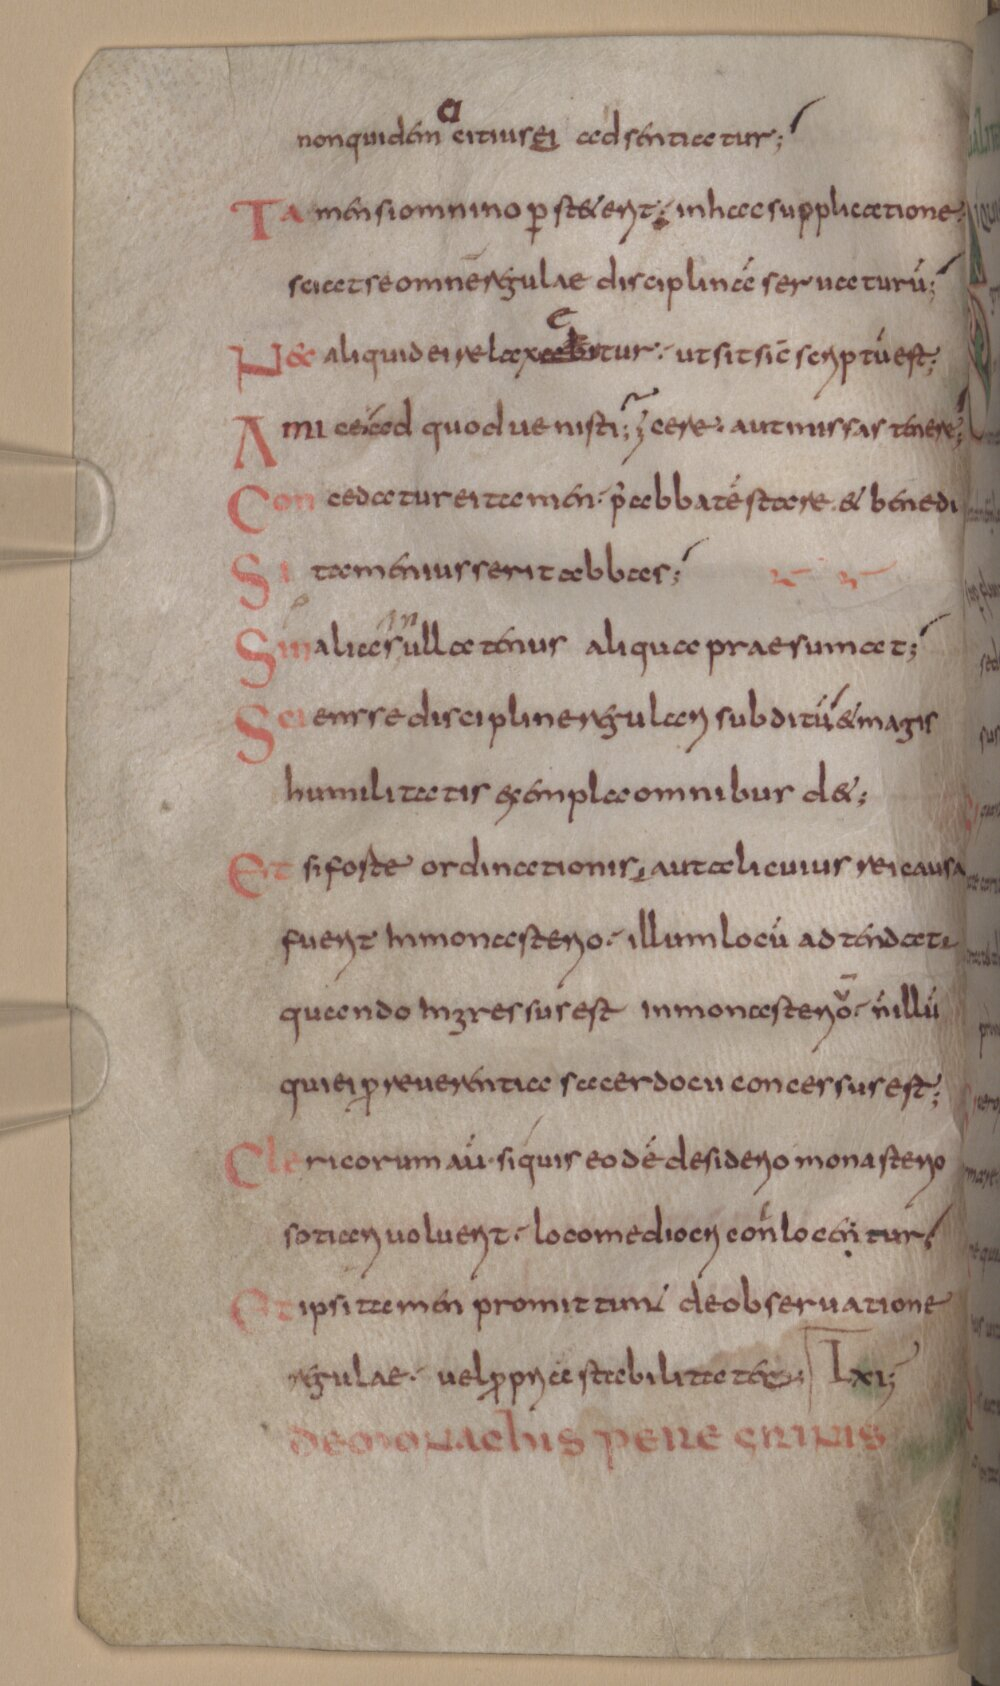 non quidem citius ei adsentiatur;
Tamen si omnino ꝑstiterit; in hac supplicatione
sciat se omnẽ regulae disciplinã seruaturũ;
Nec aliquid ei relaxabitur· ut sit sic̄ scriptũ est;
Amice ad quod uenisti;
Concedatur ei tamen· p̄ abbatẽ stare & benedi
Si tamen iusserit abbas;
Sin alias ullatenus aliqua praesumat;
Sciens se discipline regulari subditũ & magis
humilitatis exempla omnibus d&;
Et si forte ordinationis, aut alicuius rei causa
fuerit in monasterio· illum locũ adtendat
quando ingressus est in monasterio· ñ illũ
qui ei ꝓ reuerentia sacerdocii concessus est;
Clericorum aũ· siquis eodẽ desiderio monasterio
sotiari uoluerit· loco mediocri conlocentur;
Et ipsi tamen promittunt de obseruatione
regulae· uel ꝓpria stabilitate; Lxi;
De monachis peregrinis